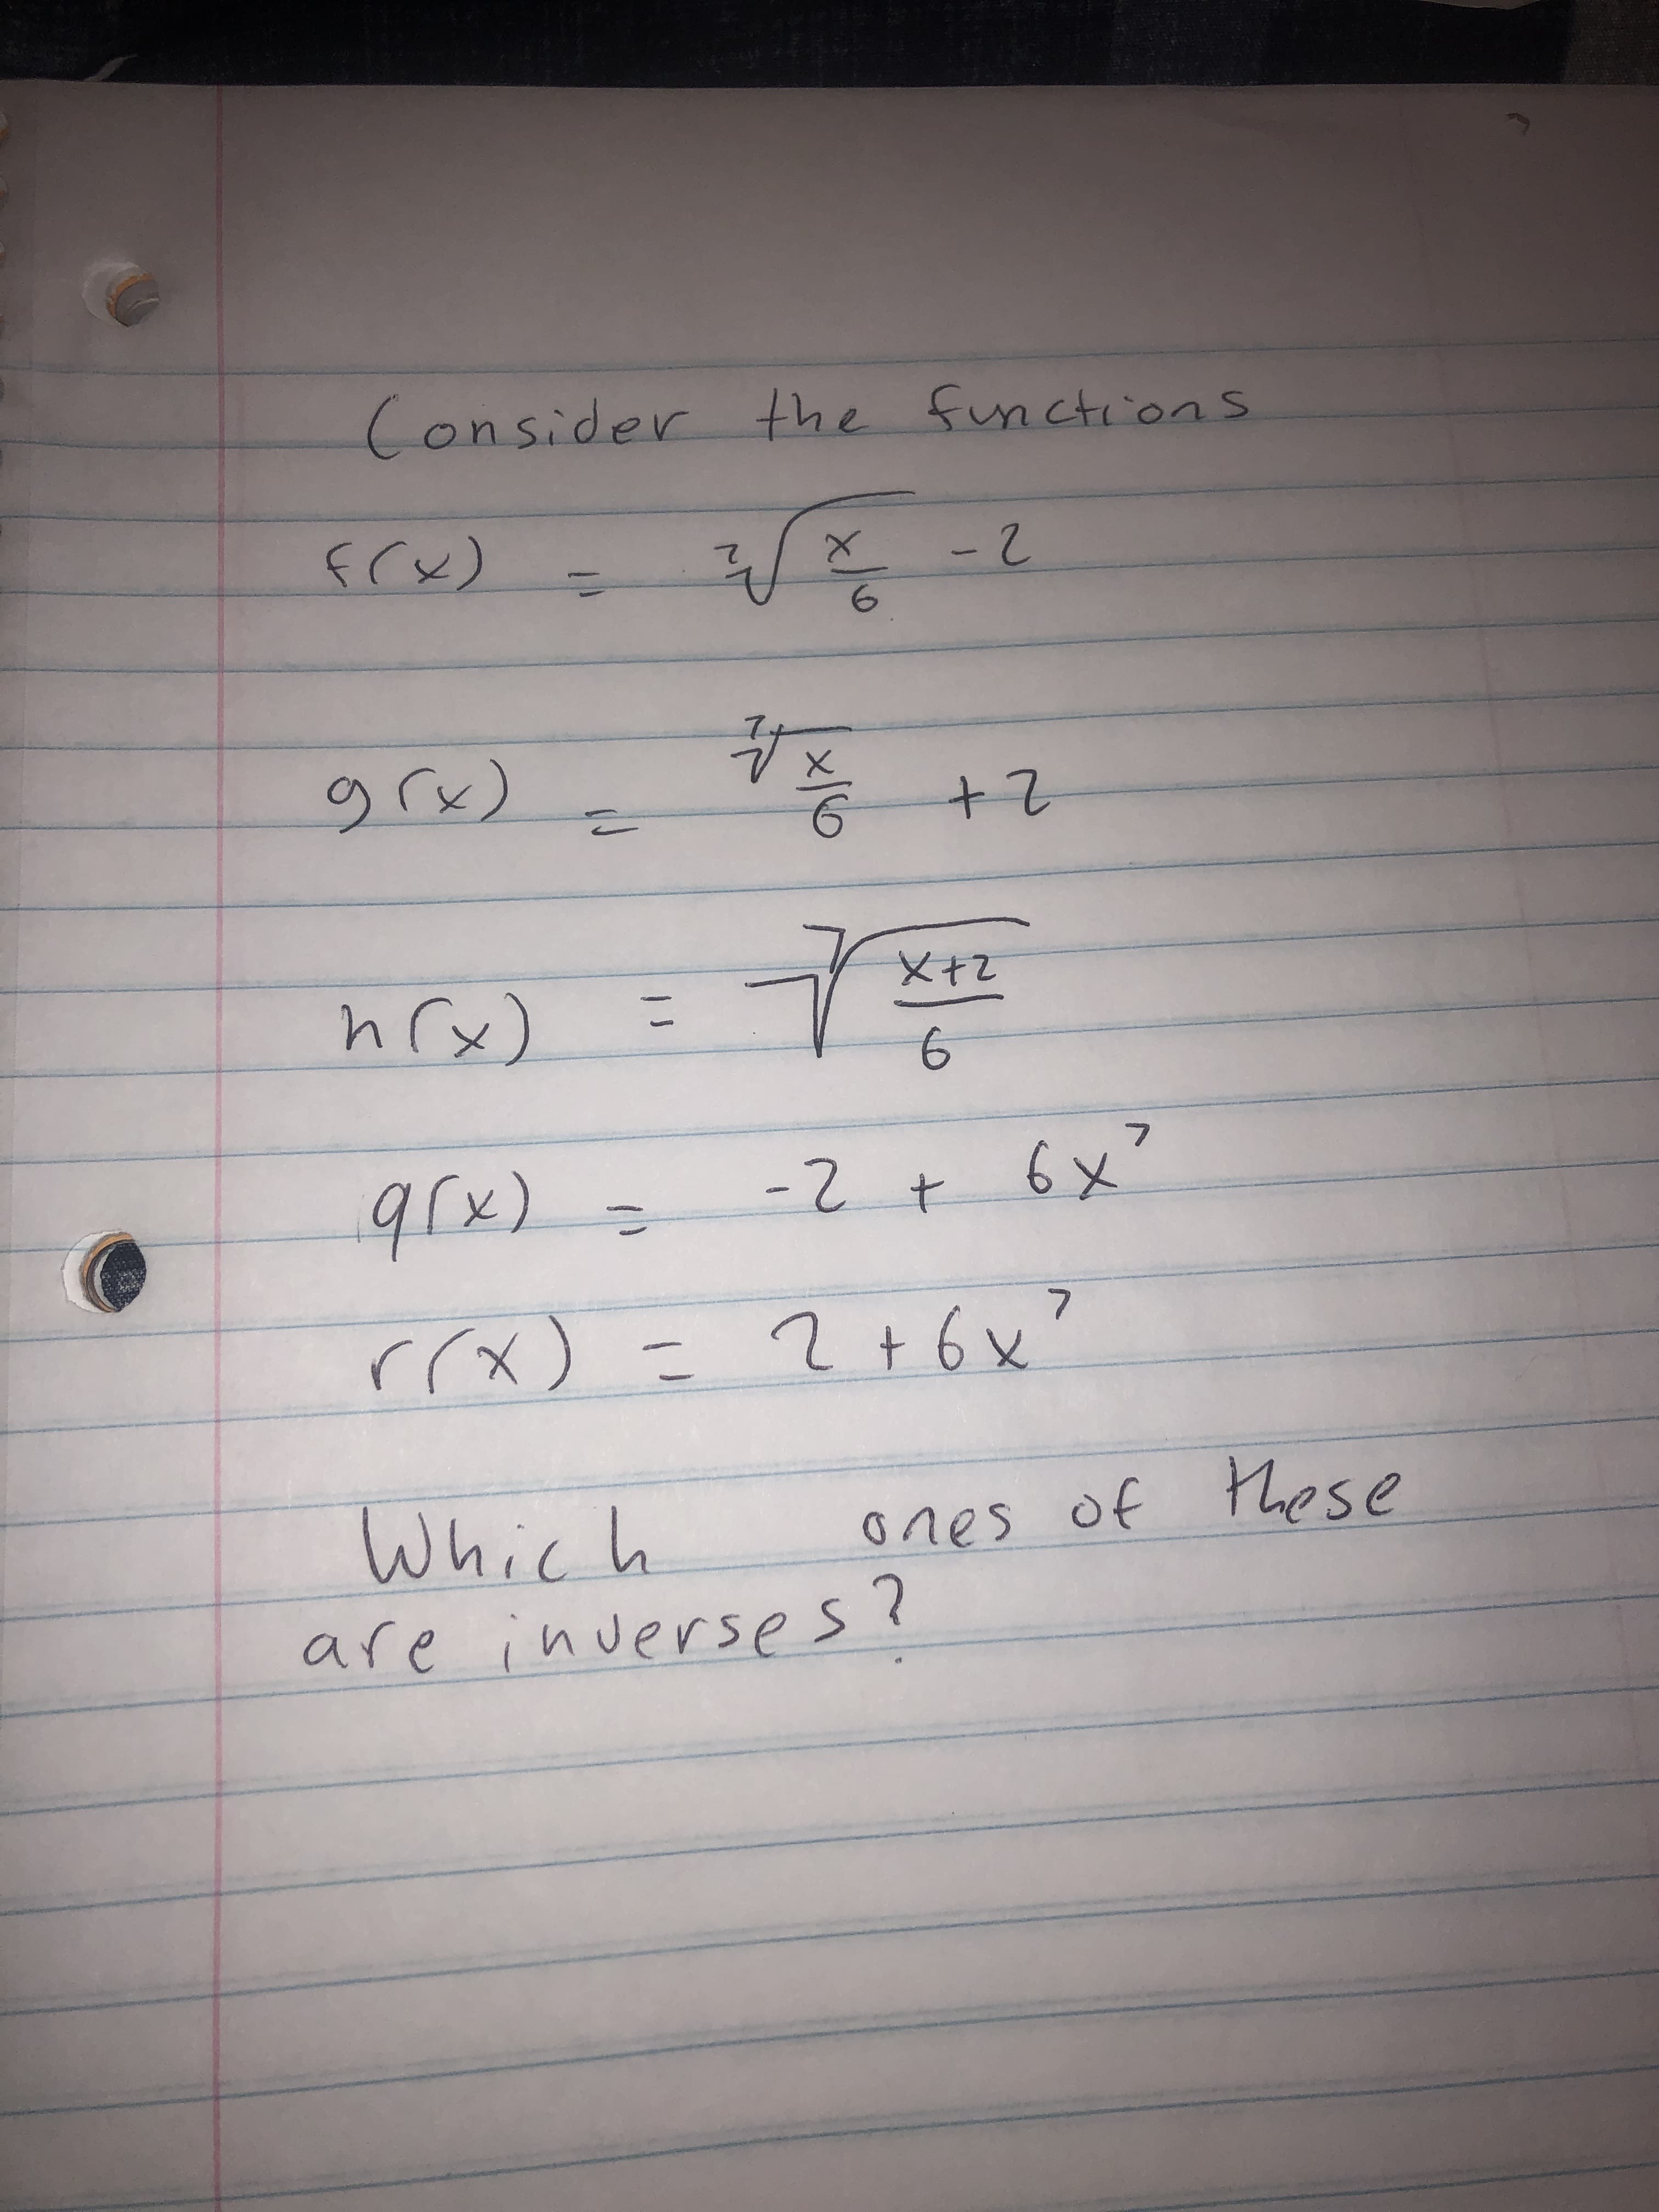 Consider the functions
f(x) = ⁷√(x/6) - 2
g(x) = ⁷√(x/6) + 2
h(x) = ⁷√((x+2)/6)
q(x) = -2 + 6x⁷
r(x) = 2 + 6x⁷
Which ones of these
are inverses?